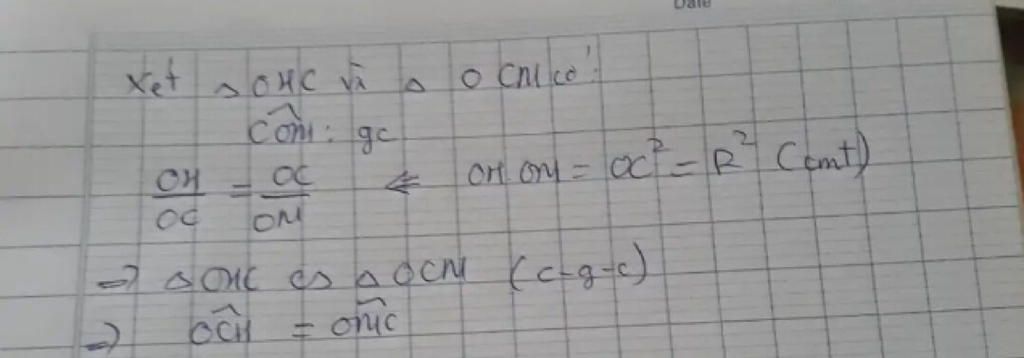 Date
Xét △ OHC và △ OCM có:
$\widehat{COM}$: gc
$\frac{OH}{OC} = \frac{OC}{OM}$ ⇐ OH.OM = OC² = R² (cmt)
⇒ △ OHC ∽ △ OCM (c-g-c)
⇒ $\widehat{OCH}$ = $\widehat{OMC}$